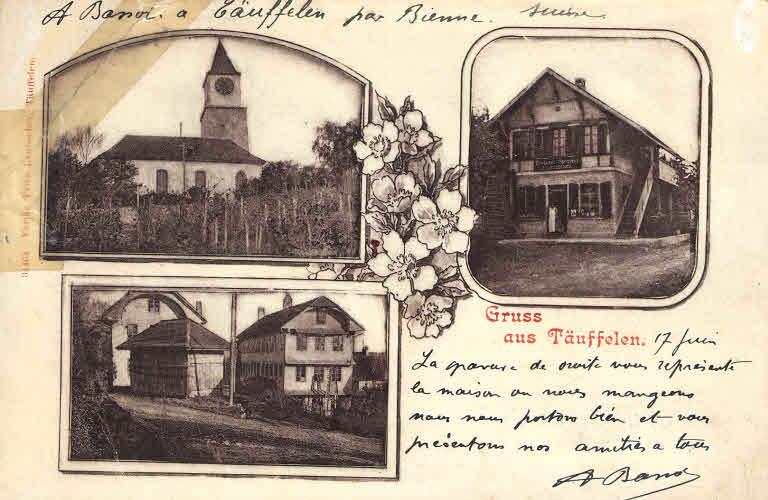 A Bassoi. a Täuffelen par Bienne. Suisse.
Verlag Fritz Täuffelen.
Gruss
aus Täuffelen. 17 Juin
La gravure de droite vous représente
la maison ou nous mangeons
nous nous portons bien et vous
présentons nos amitiés a tous
A Bassoi